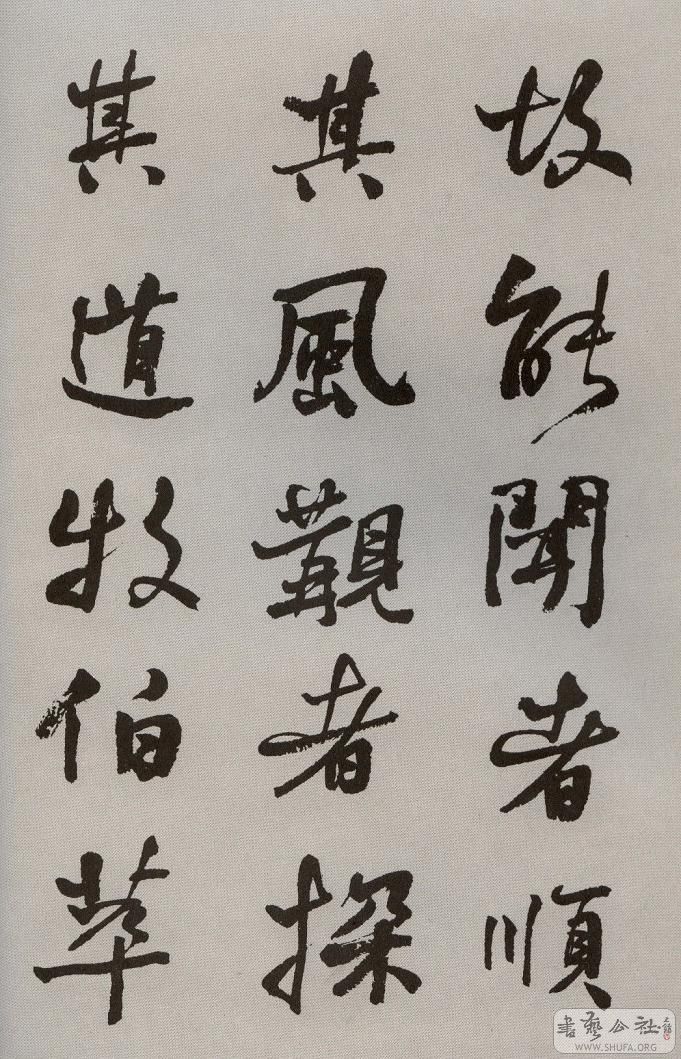 故能聞者順
其風觀者探
其道牧伯萃
書藝公社
WWW.SHUFA.ORG